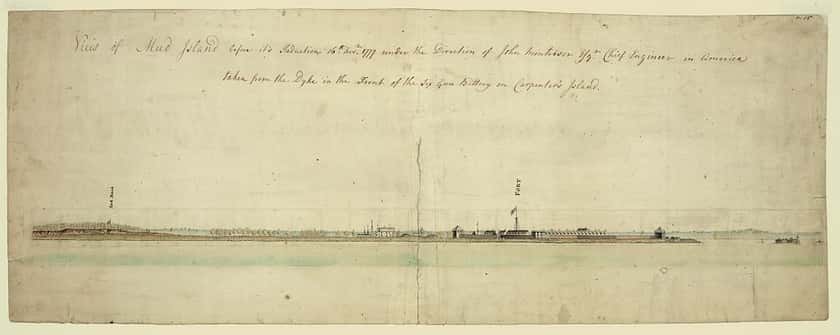 View of Mud Island before it's Reduction 16th Novr. 1777 under the Direction of John Montresor Esqr. Chief Engineer in America
taken from the Dyke in the Front of the Six Gun Battery on Carpenter's Island.
Red Bank
FORT